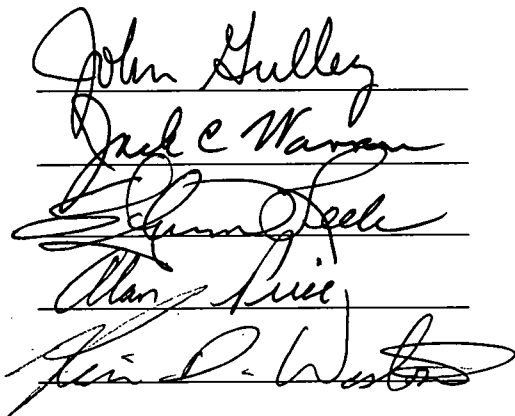 John Gulley
Jack C Warren
Leek
Alan Price
D. Weston